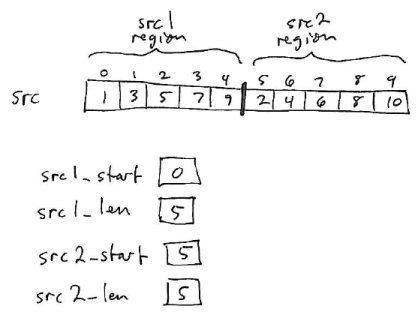 src1 src2
region region
0 1 2 3 4 5 6 7 8 9
src 1 3 5 7 9 2 4 6 8 10
src1_start 0
src1_len 5
src2_start 5
src2_len 5